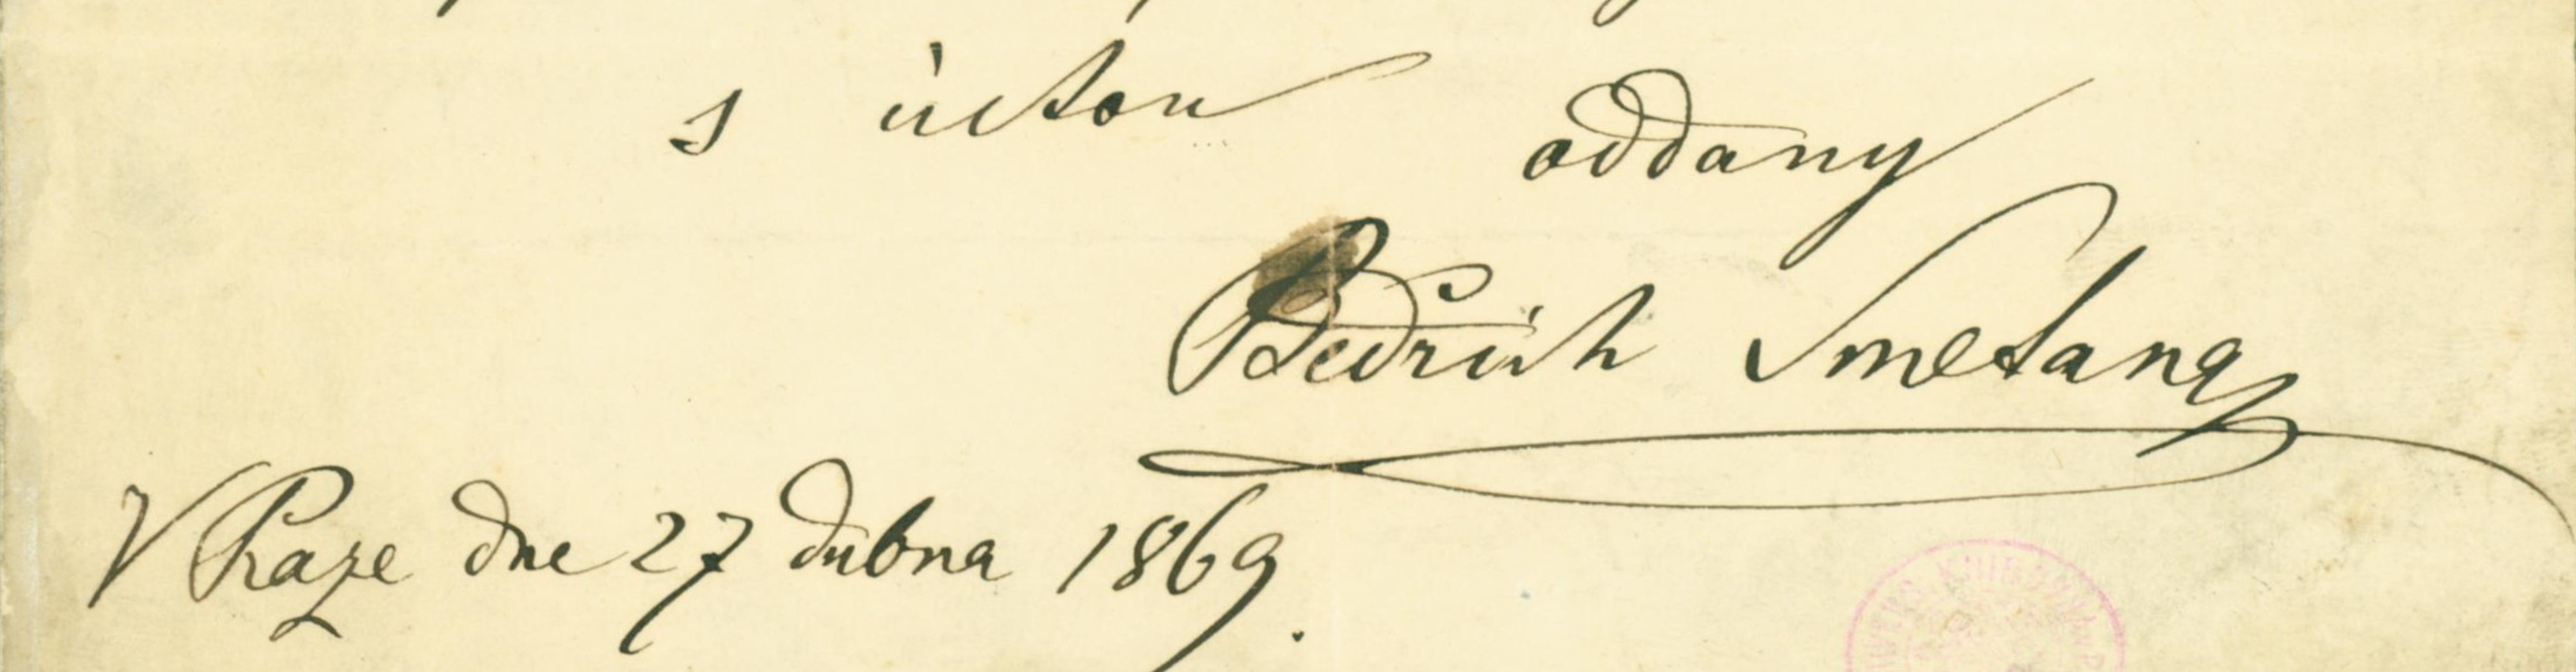 s úctou
oddany
Bedřich Smetana
V Praze dne 27 dubna 1869.